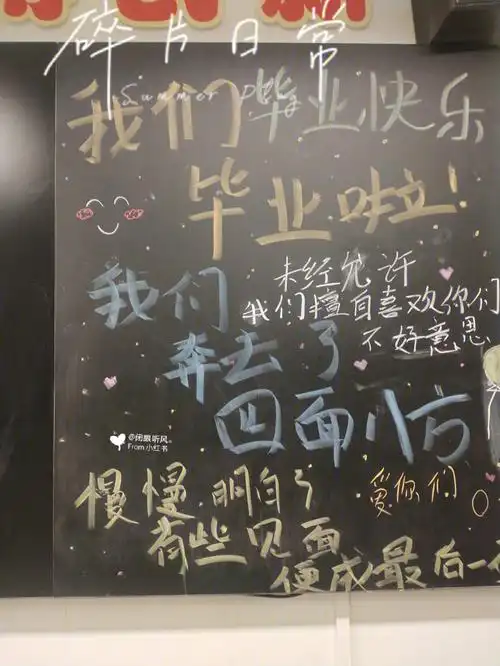 碎片日常
Summer
我们毕业快乐
毕业啦!
未经允许
我们擅自喜欢你们
不好意思
我们
奔去了
四面八方
@闭眼听风
From小红书
慢慢明白了
爱你们
有些见面
便成最后一